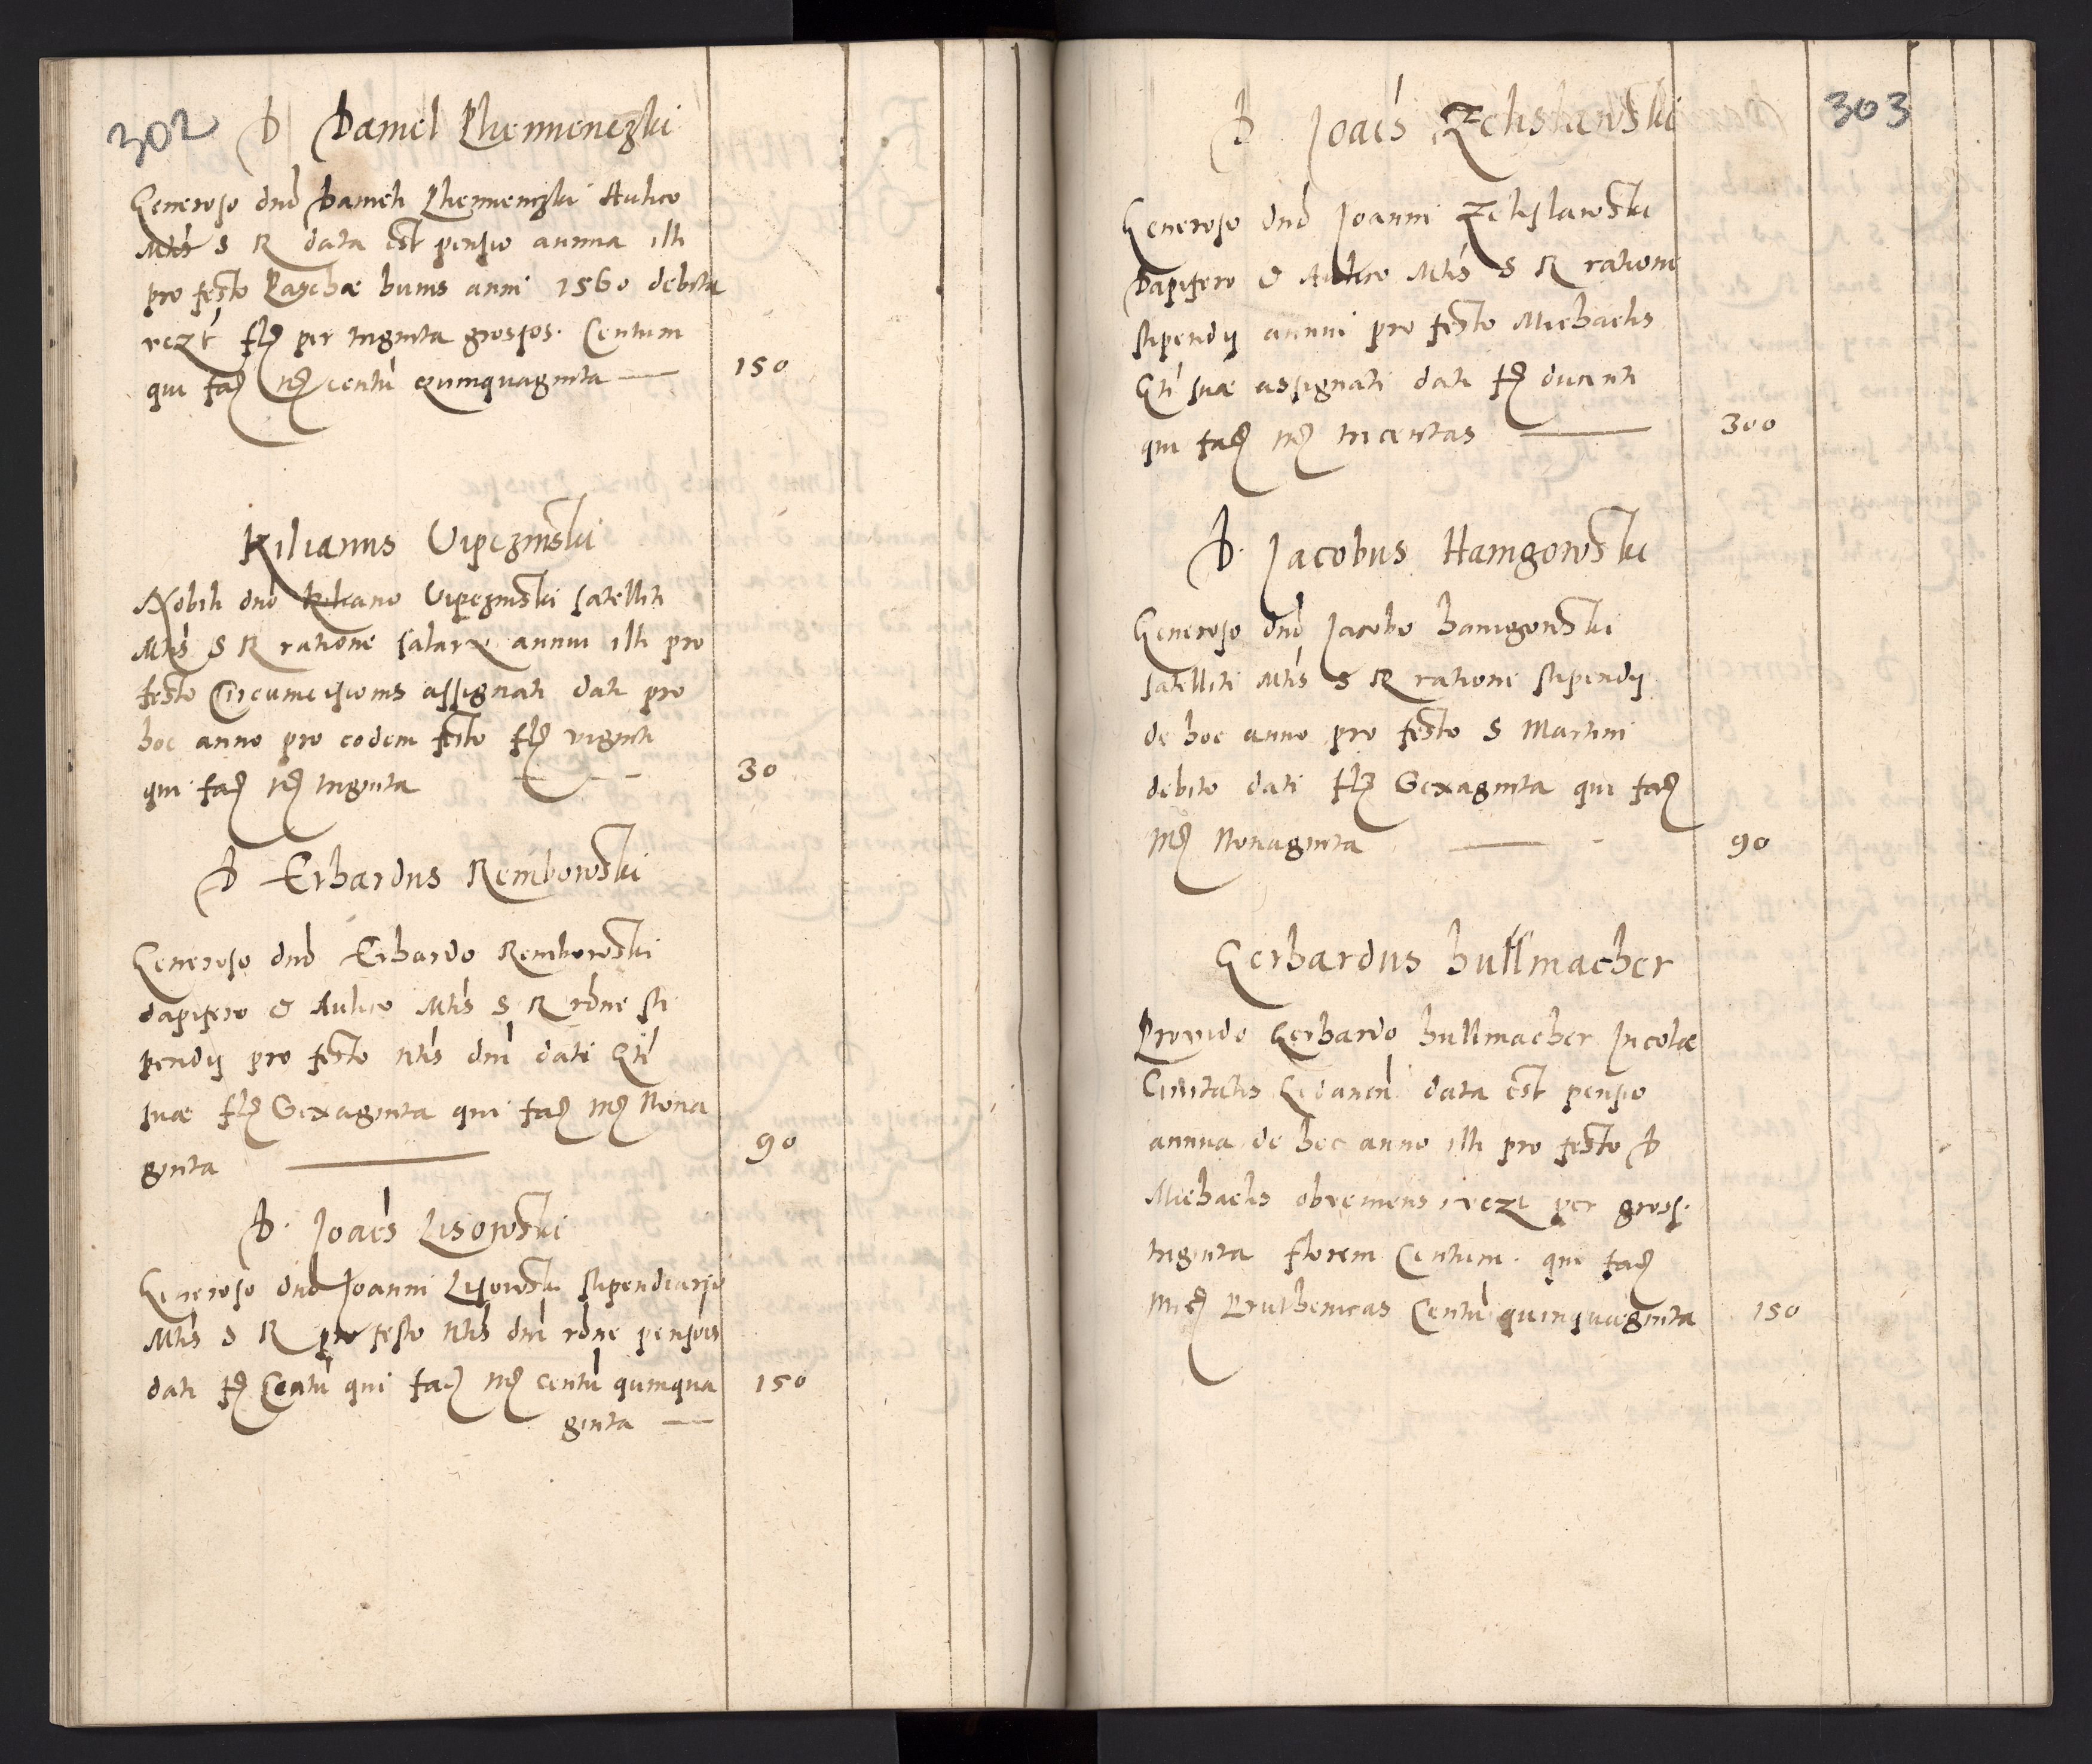 302
D Daniel Plemenczki
Generoso dno Danieli Plemenczki Aulico
Mtis S R data est pensio annua illi
pro festo Paschæ huius anni 1560 debita
vczt fl per triginta grossos. Centum
qui fac mr centu quinquaginta — 150
Kilianus Vipczinski
Nobili dno Kiliano Vipczinski satelliti
Mtis S R ratione salarii annui illi pro
festo Circumcisionis assignati dati pro
hoc anno pro eodem festo fl viginti
qui fac mr triginta 30
D Erhardus Rembowski
Generoso dno Erhardo Rembowski
dapifero & Aulico Mtis S R rone sti
pendij pro festo ntis dni dati Gti
suæ fl Sexaginta qui fac mr Nona
ginta 90
D. Joaes Lisowski
Generoso dno Joanni Lisowski stipendiario
Mtis S R pro festo Ntis dni rone pensois
dati fl Centu qui fac mr centu quinqua 150
ginta —
303
D Joaes Zelislawski
Generoso dno Joanni Zelislawski
Dapifero & Aulico Mtis S R ratione
stipendij annui pro festo Michaelis
Gti suæ assignati dati fl ducenti
qui fac mr tricentas 300
D. Jacobus Hamgowski
Generoso dno Jacobo hamgowski
satelliti Mtis S R ratione stipendij
de hoc anno pro festo S Martini
debito dati fl Sexaginta qui fac
mr Nonaginta 90
Gerhardus hullmacher
Provido Gerhardo hullmacher Incolæ
Civitatis Gedanen data est pensio
annua de hoc anno illi pro festo D
Michaelis obveniens vczt per gross.
triginta floren Centum. qui fac
mr Pruthenicas Centu quinquaginta 150